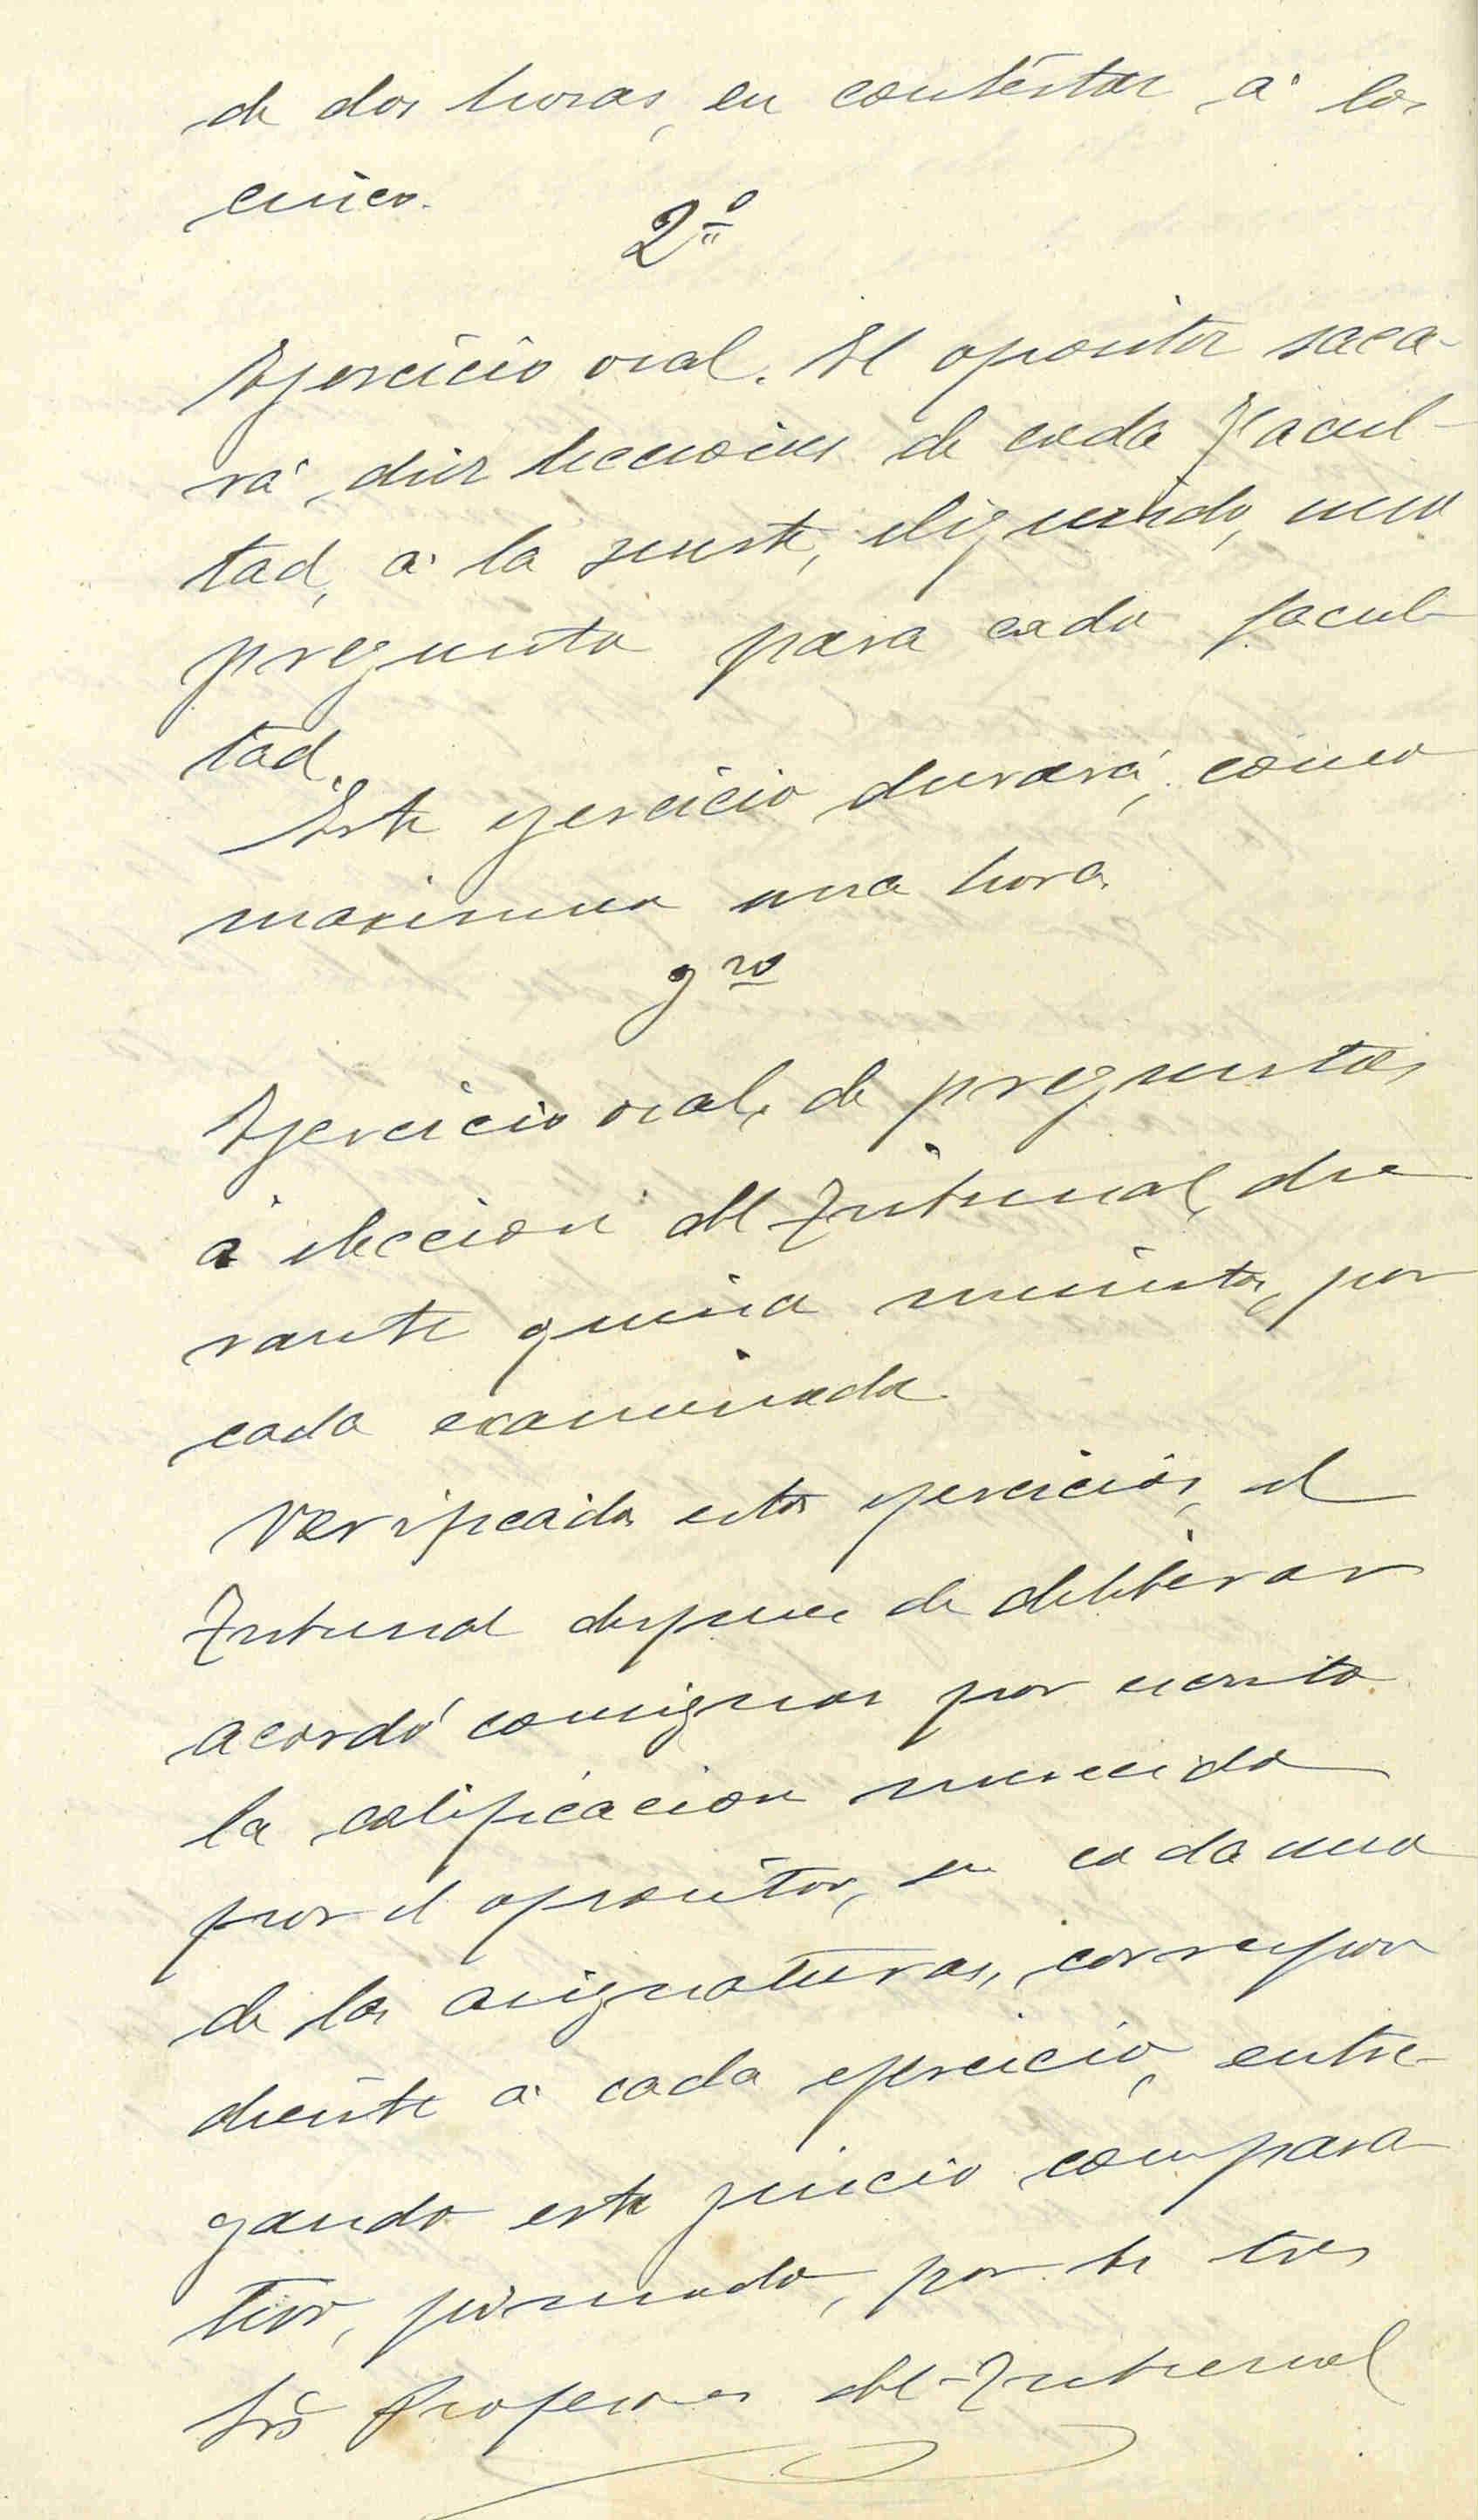 de dos horas, en contestar á los
cinco.
2º
Ejercicio oral. El opositor saca-
rá diez lecciones de cada Facul-
tad, á la suerte, eligiendo, una
pregunta para cada facul
tad.
Este ejercicio durará, como
maximun una hora.
3ro
Ejercicio oral, de preguntas
á eleccion del Tribunal, du
rante quince minutos, por
cada examinado.
Verificados estos ejercicios, el
Tribunal despues de deliberar
acordó consignar por escrito
la calificacion merecida
por el opositor, en cada una
de las asignaturas, correspon
diente á cada ejercicio, entre-
gando este juicio compara
tivo, firmado, por los tres
Srs Profesores del Tribunal